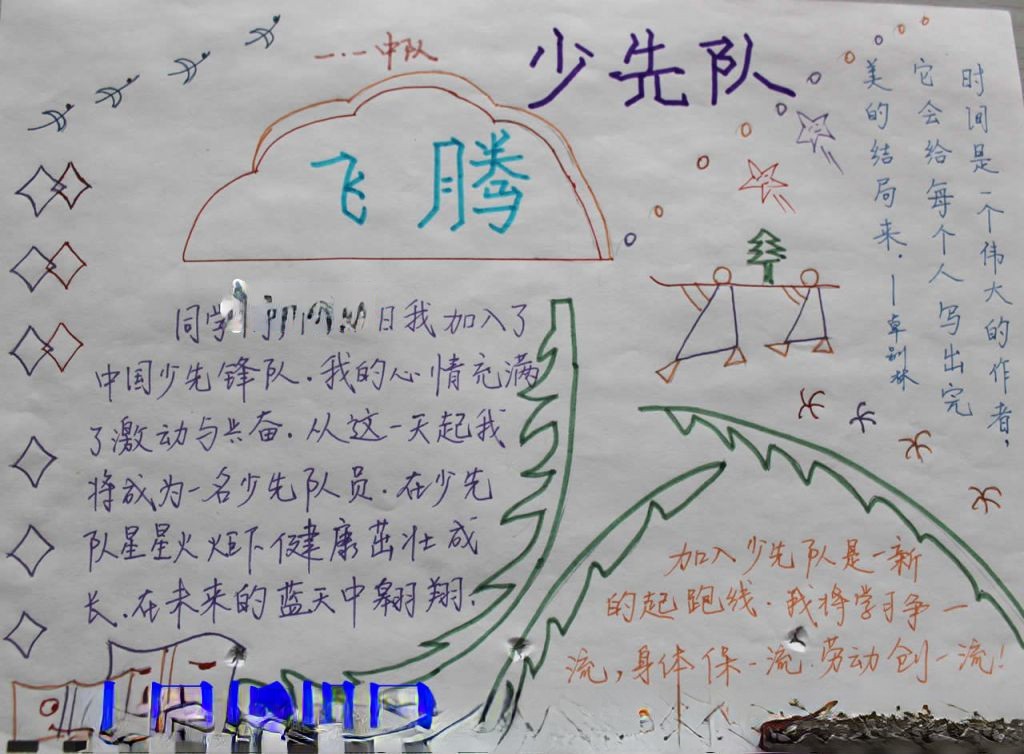 一·一中队
少先队
飞腾
时间是一个伟大的作者,
它会给每个人写出完
美的结局来.
一卓别林
同学
日我加入了
中国少先锋队.我的心情充满
了激动与兴奋.从这一天起我
将成为一名少先队员.在少先
队星星火炬下健康茁壮成
长.在未来的蓝天中翱翔.
加入少先队是一新
的起跑线.我将学习争一
流,身体保一流.劳动创一流!